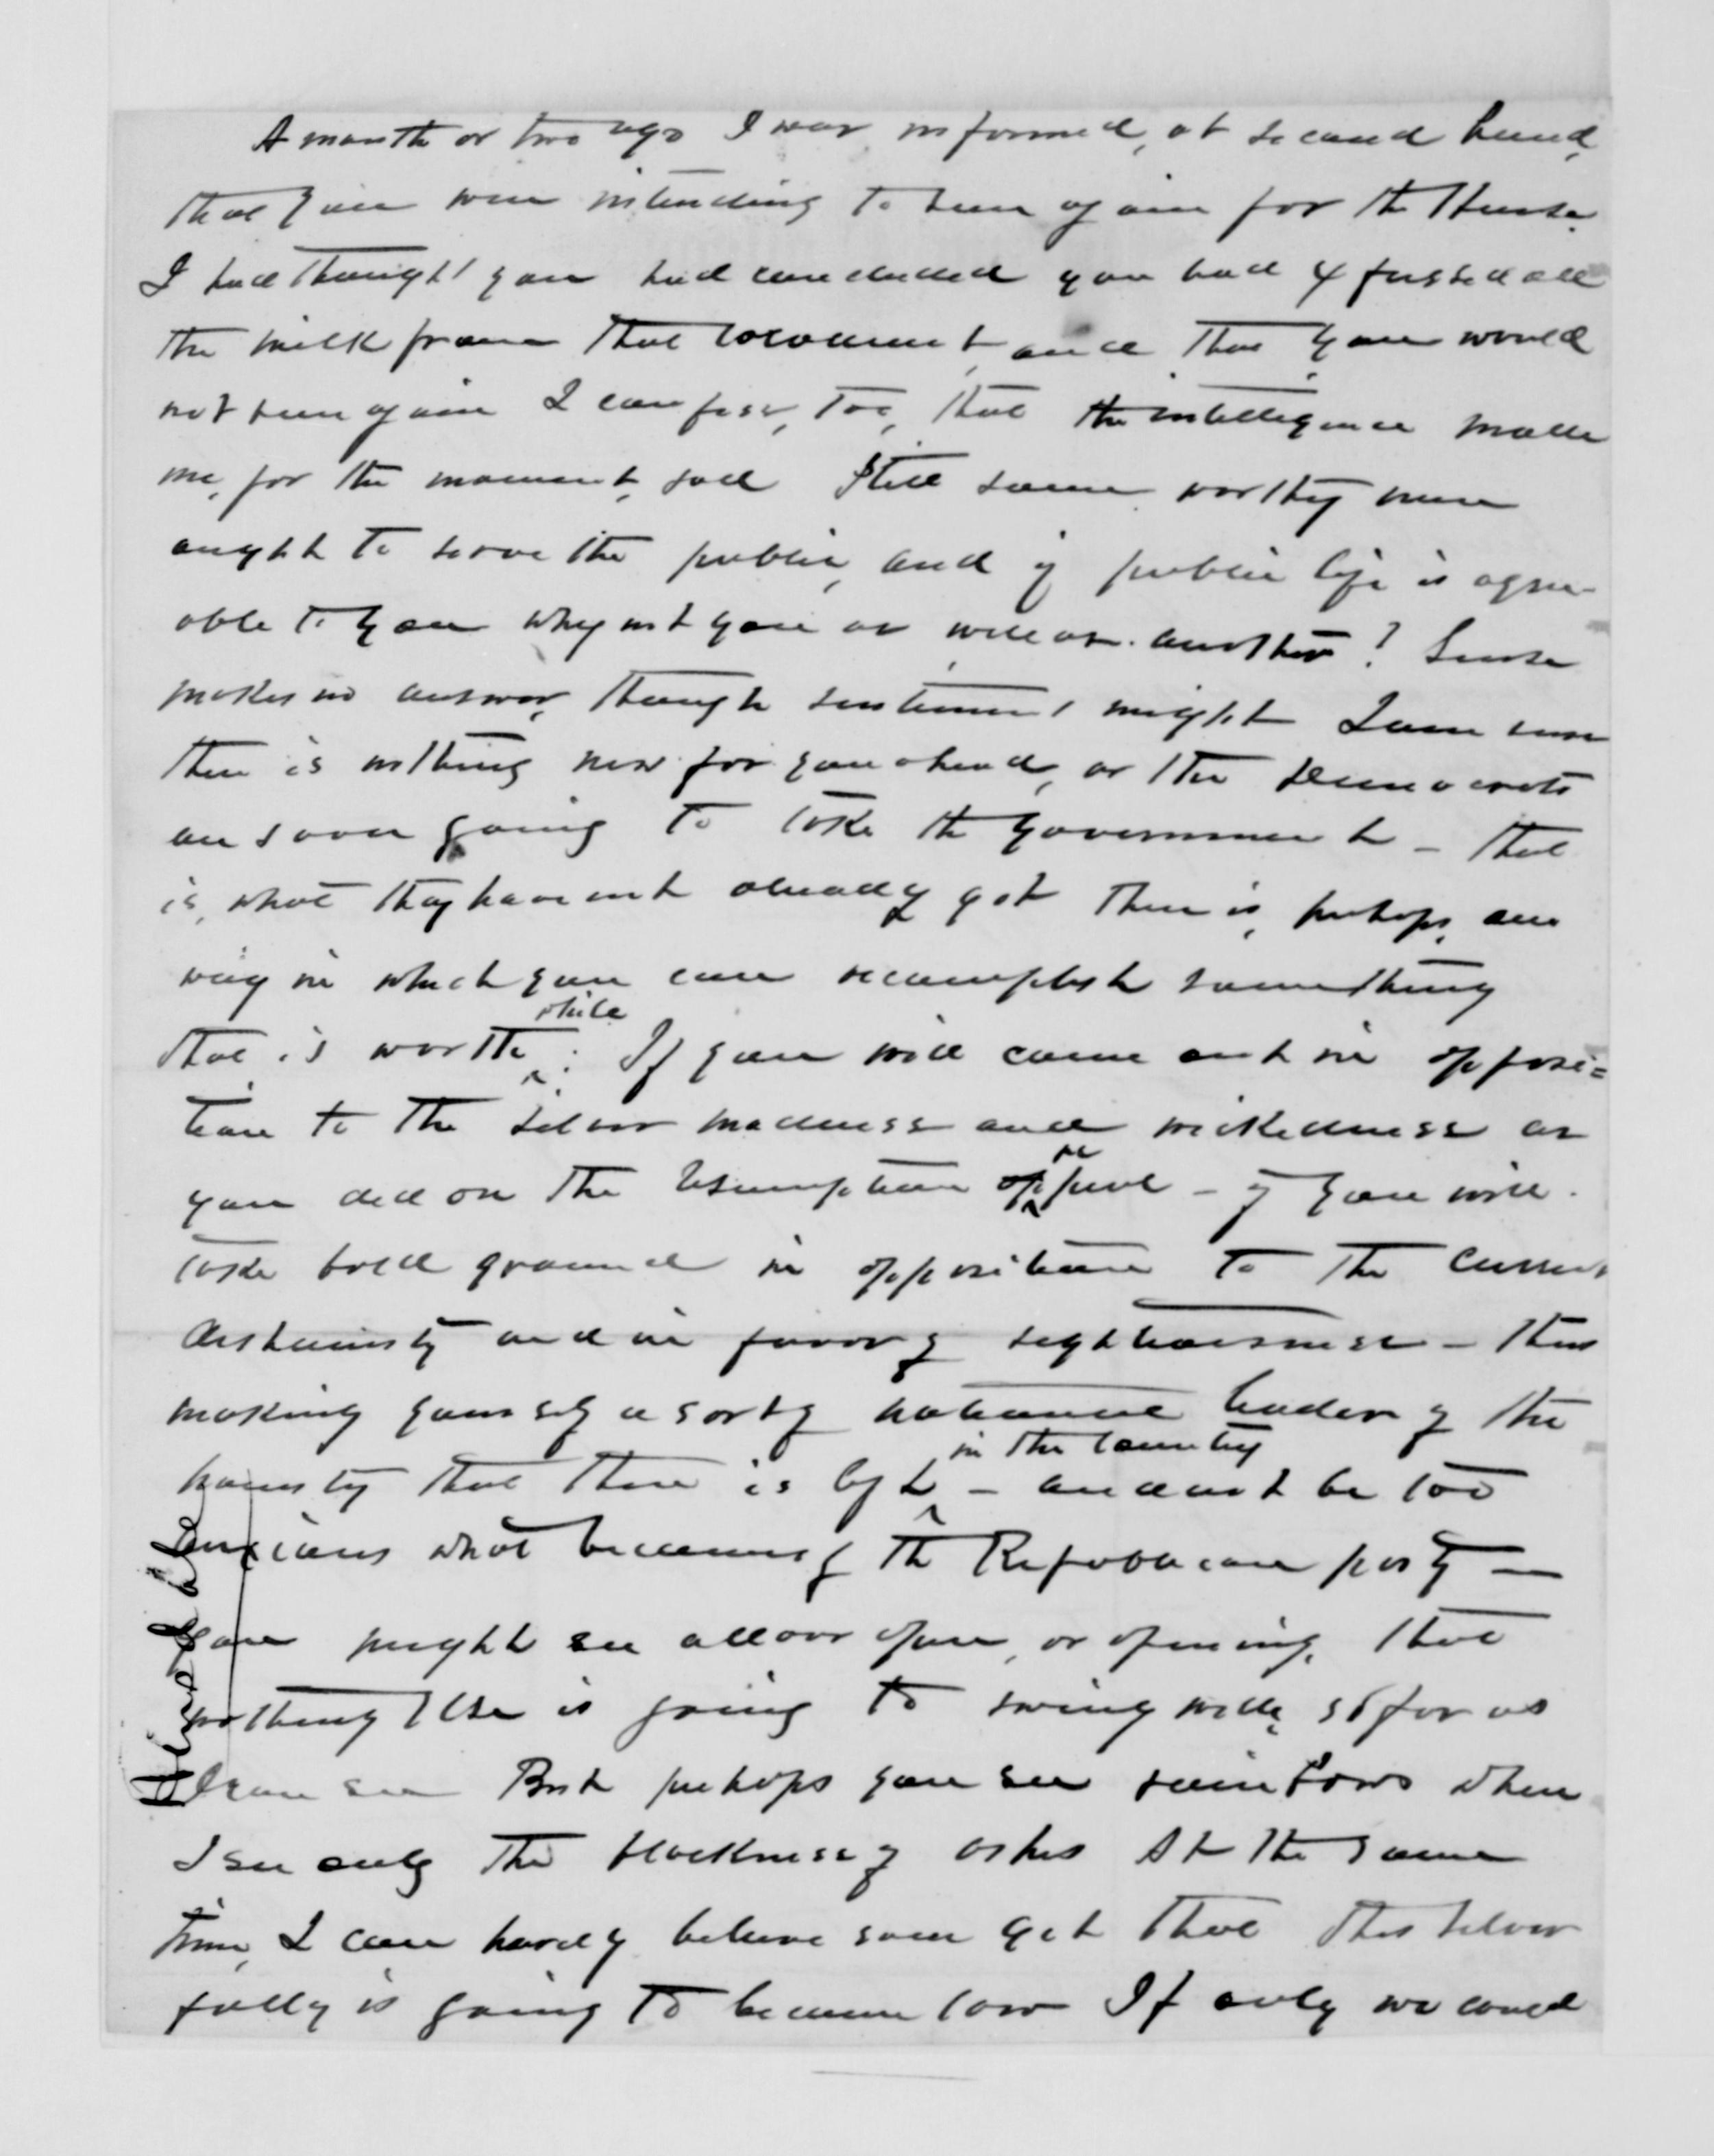 A month or two ago I was informed, at second hand,
that you were intending to run again for the House.
I had thought you had concluded you had exhausted all
the milk from that cocoanut, and that you would
not run again I confess, too, that the intelligence made
me, for the moment, sad Still some worthy man
ought to serve the public, and if public life is agree-
able to you why not you as well as another? Sense
makes no answer, though sentiment might I am sure
there is nothing new for you ahead, as the Democrats
are soon going to take the Government – that
is, what they have not already got There is, perhaps, one
way in which you can accomplish something
that is worth while: If you will come out in opposi=
tion to the silver madness and wickedness as
you did on the resumption repeal – if you will
take bold ground in opposition to the current
dishonesty and in favor of righteousness – thus
making yourself a sort of national leader of the
honesty that there is left in the country – and not be too
anxious what becomes of the Republican party —
you might see a door open, or opening, that
nothing else is going to swing wide, so far as
I can see But perhaps you see rainbows where
I see only the blackness of ashes At the same
time, I can hardly believe soon yet that this silver
folly is going to become law If only we could